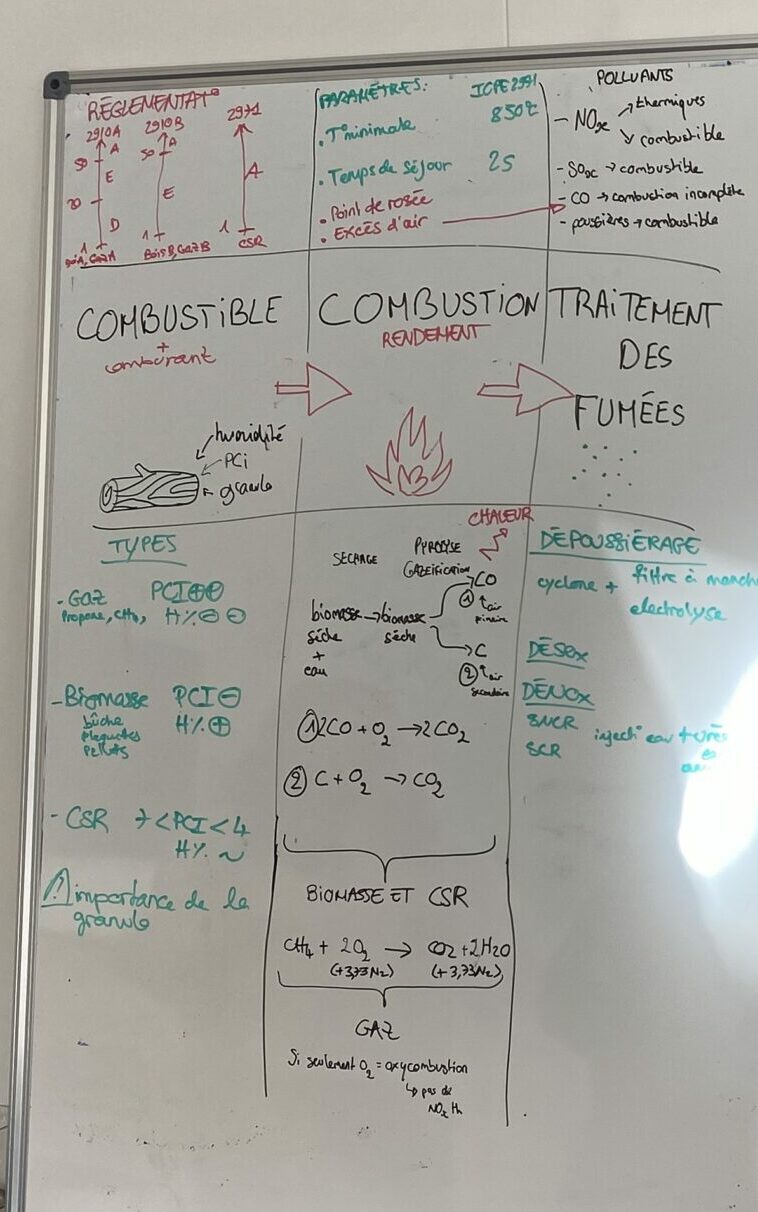 RÉGLEMENTAT°
2910A
2910B
2971
50
A
E
20
D
1
Bois A, Gaz A
50
A
E
1
Bois B, Gaz B
A
1
CSR
PARAMÈTRES:
ICPE 2971
• T° minimale
850°C
• Temps de séjour
2s
• Point de rosée
• Excès d'air
POLLUANTS
- NOx → thermiques
↘ combustible
- SOx → combustible
- CO → combustion incomplète
- poussières → combustible
COMBUSTIBLE
+
comburant
COMBUSTION
RENDEMENT
TRAITEMENT
DES
FUMÉES
humidité
PCi
granulo
TYPES
- Gaz PCI⊕⊕
Propane, CH₄, H%⊖⊖
- Biomasse PCI⊖
bûche H%⊕
plaquettes
Pellets
- CSR 7<PCI<4
H% ~
⚠ importance de la
granulo
CHALEUR
SÉCHAGE
PYROLYSE
GAZEIFICATION
biomasse → biomasse
sèche
sèche
+
eau
CO
① ↑ air
primaire
C
② ↑ air
secondaire
① 2CO + O₂ → 2CO₂
② C + O₂ → CO₂
BIOMASSE ET CSR
CH₄ + 2O₂ → CO₂ + 2H₂O
(+3,73N₂) (+3,73N₂)
GAZ
Si seulement O₂ = oxycombustion
↳ pas de
NOx th
DÉPOUSSIÉRAGE
cyclone + filtre à manche
electrolyse
DÉSOx
DÉNOx
SNCR
SCR
inject° eau +